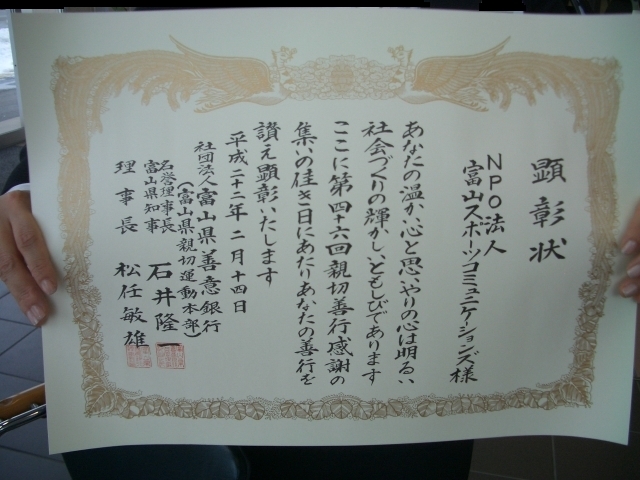 顕彰状
NPO法人
富山スポーツコミュニケーションズ様
あなたの温かい心と思いやりの心は明るい
社会づくりの輝かしいともしびであります
ここに第四十六回親切善行感謝の
集いの佳き日にあたりあなたの善行を
讃え顕彰いたします
平成二十二年二月十四日
社団法人富山県善意銀行
(富山県親切運動本部)
名誉理事長
富山県知事 石井隆一
理事長 松任敏雄